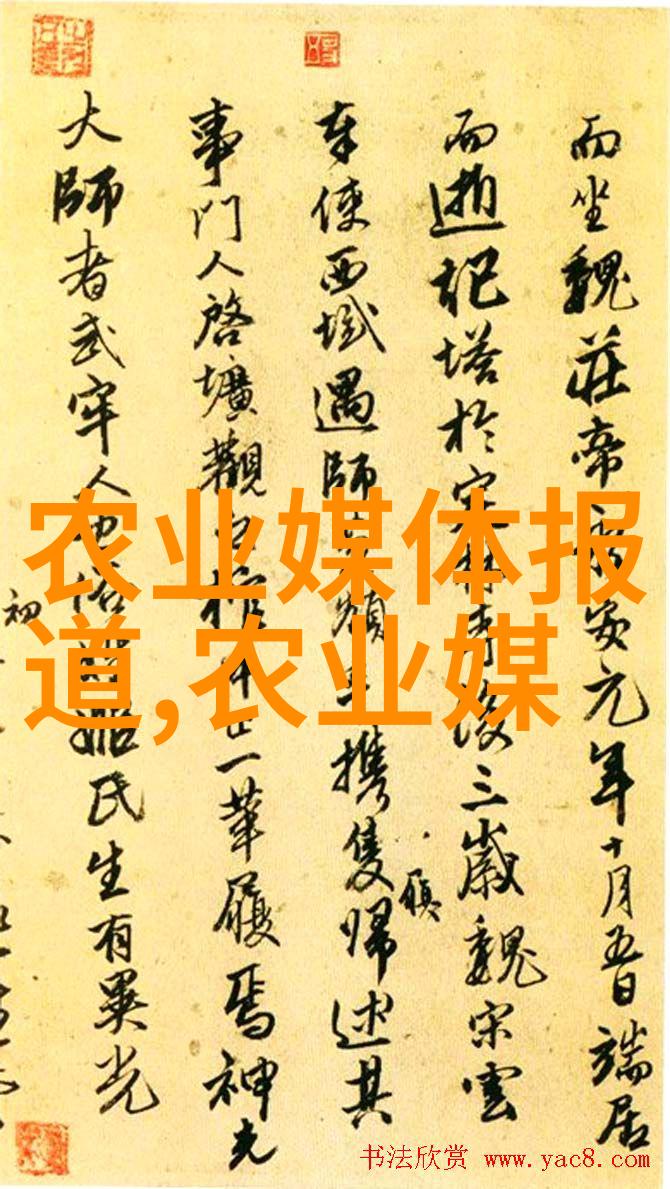 而坐魏莊帝安元年十月五日端居
而逝記塔於三歲魏宋雲
奉使西域遇師攜隻歸述其
履
事門人啓壙觀一革履焉神光
大師者武牢人也姬氏生有異光
初
农业媒体报
道,农业媒
书法欣赏 www.yac8.com